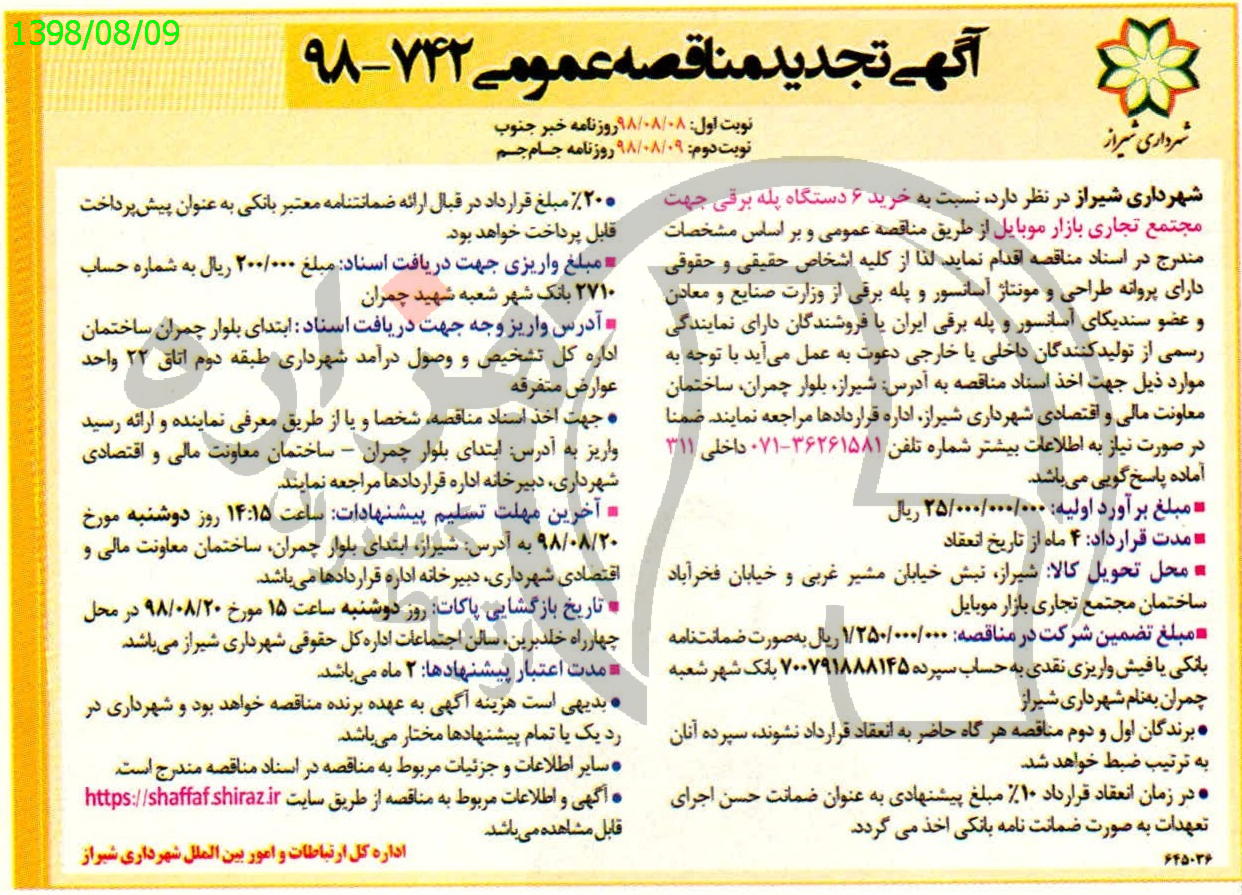 1398/08/09
آگهی تجدید مناقصه عمومی ۷۴۲-۹۸
شهرداری شیراز
نوبت اول: ۹۸/۰۸/۰۸ روزنامه خبر جنوب
نوبت دوم: ۹۸/۰۸/۰۹ روزنامه جام‌جم
شهرداری شیراز در نظر دارد، نسبت به خرید ۶ دستگاه پله برقی جهت
مجتمع تجاری بازار موبایل از طریق مناقصه عمومی و بر اساس مشخصات
مندرج در اسناد مناقصه اقدام نماید. لذا از کلیه اشخاص حقیقی و حقوقی
دارای پروانه طراحی و مونتاژ آسانسور و پله برقی از وزارت صنایع و معادن
و عضو سندیکای آسانسور و پله برقی ایران یا فروشندگان دارای نمایندگی
رسمی از تولیدکنندگان داخلی یا خارجی دعوت به عمل می‌آید با توجه به
موارد ذیل جهت اخذ اسناد مناقصه به آدرس: شیراز، بلوار چمران، ساختمان
معاونت مالی و اقتصادی شهرداری شیراز، اداره قراردادها مراجعه نمایند. ضمنا
در صورت نیاز به اطلاعات بیشتر شماره تلفن ۳۶۲۶۱۵۸۱-۰۷۱ داخلی ۳۱۱
آماده پاسخ‌گویی می‌باشد.
■ مبلغ برآورد اولیه: ۲۵/۰۰۰/۰۰۰/۰۰۰ ریال
■ مدت قرارداد: ۴ ماه از تاریخ انعقاد
■ محل تحویل کالا: شیراز، نبش خیابان مشیر غربی و خیابان فخرآباد
ساختمان مجتمع تجاری بازار موبایل
■ مبلغ تضمین شرکت در مناقصه: ۱/۲۵۰/۰۰۰/۰۰۰ ریال به‌صورت ضمانت‌نامه
بانکی یا فیش واریزی نقدی به حساب سپرده ۷۰۰۷۹۱۸۸۸۱۴۵ بانک شهر شعبه
چمران به‌نام شهرداری شیراز
● برندگان اول و دوم مناقصه هر گاه حاضر به انعقاد قرارداد نشوند، سپرده آنان
به ترتیب ضبط خواهد شد.
● در زمان انعقاد قرارداد ۱۰٪ مبلغ پیشنهادی به عنوان ضمانت حسن اجرای
تعهدات به صورت ضمانت نامه بانکی اخذ می گردد.
۶۴۵۰۳۶
● ۲۰٪ مبلغ قرارداد در قبال ارائه ضمانتنامه معتبر بانکی به عنوان پیش‌پرداخت
قابل پرداخت خواهد بود.
■ مبلغ واریزی جهت دریافت اسناد: مبلغ ۲۰۰/۰۰۰ ریال به شماره حساب
۲۷۱۰ بانک شهر شعبه شهید چمران
■ آدرس واریز وجه جهت دریافت اسناد: ابتدای بلوار چمران ساختمان
اداره کل تشخیص و وصول درآمد شهرداری طبقه دوم اتاق ۲۲ واحد
عوارض متفرقه
● جهت اخذ اسناد مناقصه، شخصا و یا از طریق معرفی نماینده و ارائه رسید
واریز به آدرس: ابتدای بلوار چمران – ساختمان معاونت مالی و اقتصادی
شهرداری، دبیرخانه اداره قراردادها مراجعه نمایند.
■ آخرین مهلت تسلیم پیشنهادات: ساعت ۱۴:۱۵ روز دوشنبه مورخ
۹۸/۰۸/۲۰ به آدرس: شیراز، ابتدای بلوار چمران، ساختمان معاونت مالی و
اقتصادی شهرداری، دبیرخانه اداره قراردادها می‌باشد.
■ تاریخ بازگشایی پاکات: روز دوشنبه ساعت ۱۵ مورخ ۹۸/۰۸/۲۰ در محل
چهارراه خلدبرین، سالن اجتماعات اداره‌کل حقوقی شهرداری شیراز می‌باشد.
■ مدت اعتبار پیشنهادها: ۲ ماه می‌باشد.
● بدیهی است هزینه آگهی به عهده برنده مناقصه خواهد بود و شهرداری در
رد یک یا تمام پیشنهادها مختار می‌باشد.
● سایر اطلاعات و جزئیات مربوط به مناقصه در اسناد مناقصه مندرج است.
● آگهی و اطلاعات مربوط به مناقصه از طریق سایت https://shaffaf.shiraz.ir
قابل مشاهده می‌باشد.
اداره کل ارتباطات و امور بین الملل شهرداری شیراز